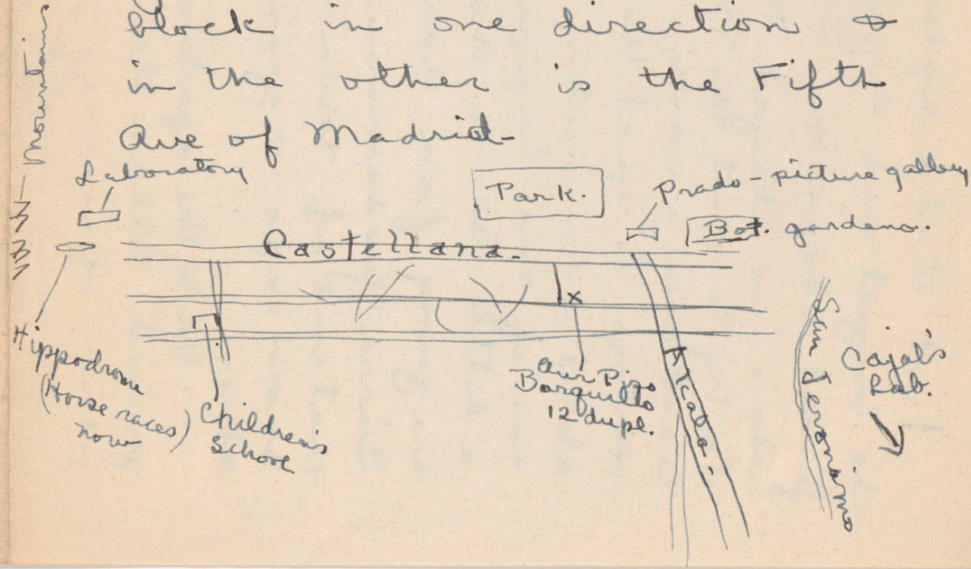 block in one direction &
in the other is the Fifth
Ave of Madrid -
Mountains
Laboratory
Park.
Prado - picture gallery
Bot. gardens.
Castellana.
x
Hippodrome
(Horse races)
now
Children's
School
Our Piso
Barquillo
12 dupl.
Alcala.
San Jeronimo
Cajal's
Lab.